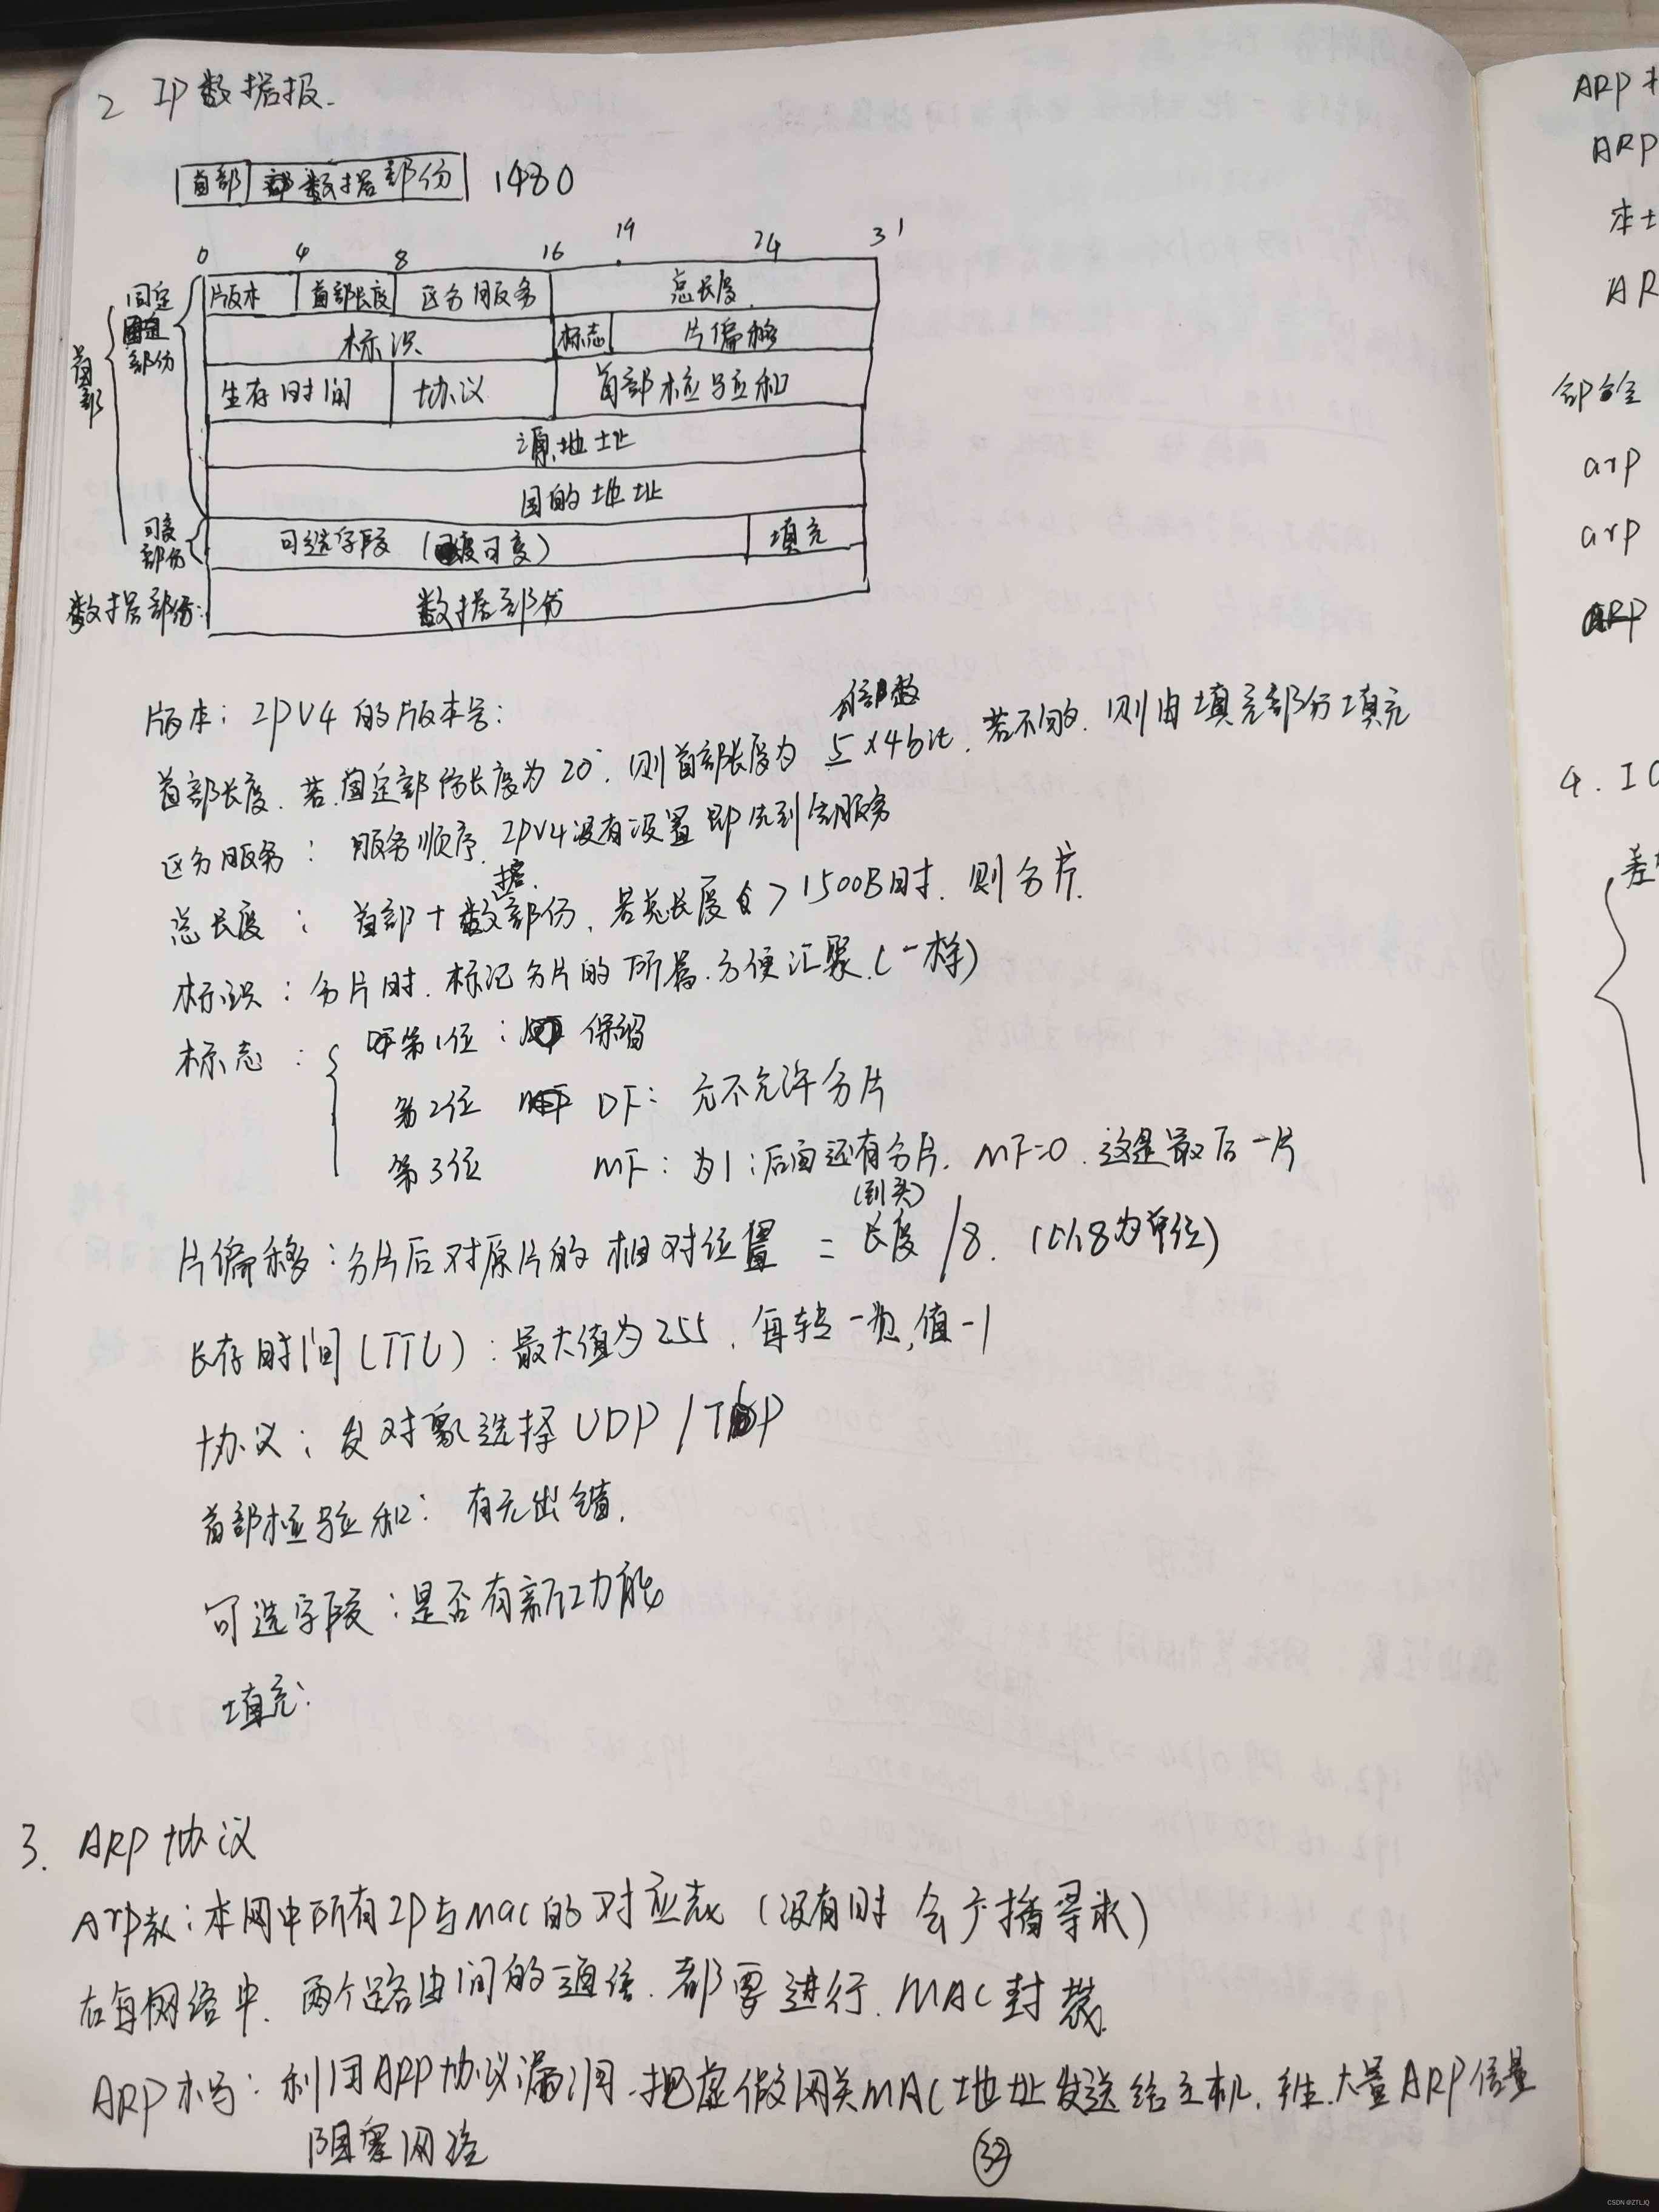 2 IP数据报.
首部 数据部份 1480
0 4 8 16 19 24 31
版本 首部长度 区分服务 总长度
固定部份
标识 标志 片偏移
首部
生存时间 协议 首部检验和
源地址
目的地址
可变部份
可选字段 (可变) 填充
数据部份: 数据部份
版本: IPV4的版本号:
首部长度. 若固定部份长度为20. 则首部长度为 5×4bit. 若不够. 则由填充部分填充
倍数
区分服务: 服务顺序. IPV4没有设置即先到先服务
总长度: 首部+数据部份. 若总长度>1500B时. 则分片.
标识: 分片时. 标记分片的所属. 方便汇聚.(一样)
标志: 第1位: 保留
第2位 DF: 允不允许分片
第3位 MF: 为1:后面还有分片. MF=0. 这是最后一片
(到头)
片偏移: 分片后对原片的相对位置 = 长度/8. (以8为单位)
长存时间(TTL): 最大值为255. 每转一次,值-1
协议: 对象选择UDP/TCP
首部检验和: 有无出错.
可选字段: 是否有新功能
填充:
3. ARP协议
Arp表: 本网中所有IP与MAC的对应表 (没有时会广播寻求)
在每网络中. 两个路由间的通信. 都要进行. MAC封装.
ARP木马: 利用ARP协议漏洞. 把虚假网关MAC地址发送给主机. 大量ARP信量
阻塞网络
32
ARP
ARP
本
AR
arp
arp
ARP
4. IC
差
CSDN @ZTLJQ